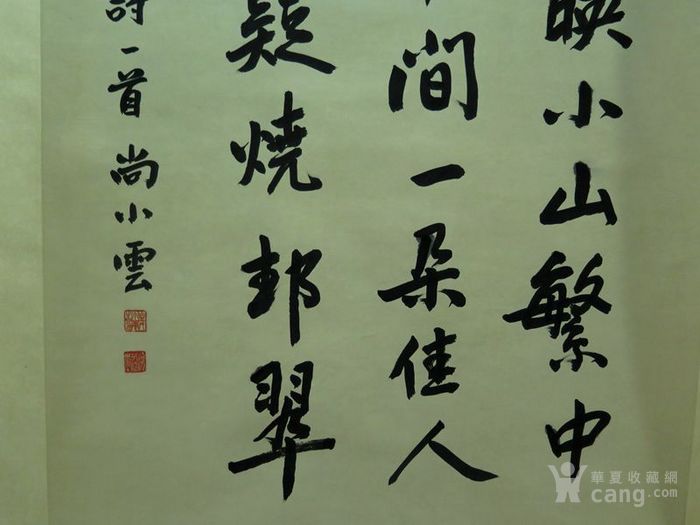 暎小山繁中
間一朵佳人
疑燒却翠
詩一首 尚小雲
華夏收藏網
cang.com